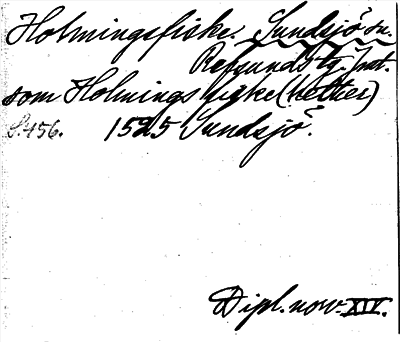 Holmingsfiske. Sundsjö sn.
Refsunds tg. Jmt.
som Holmings fiske (hetter)
S. 456. 1525 Sundsjö.
Dipl. norv. XIV.